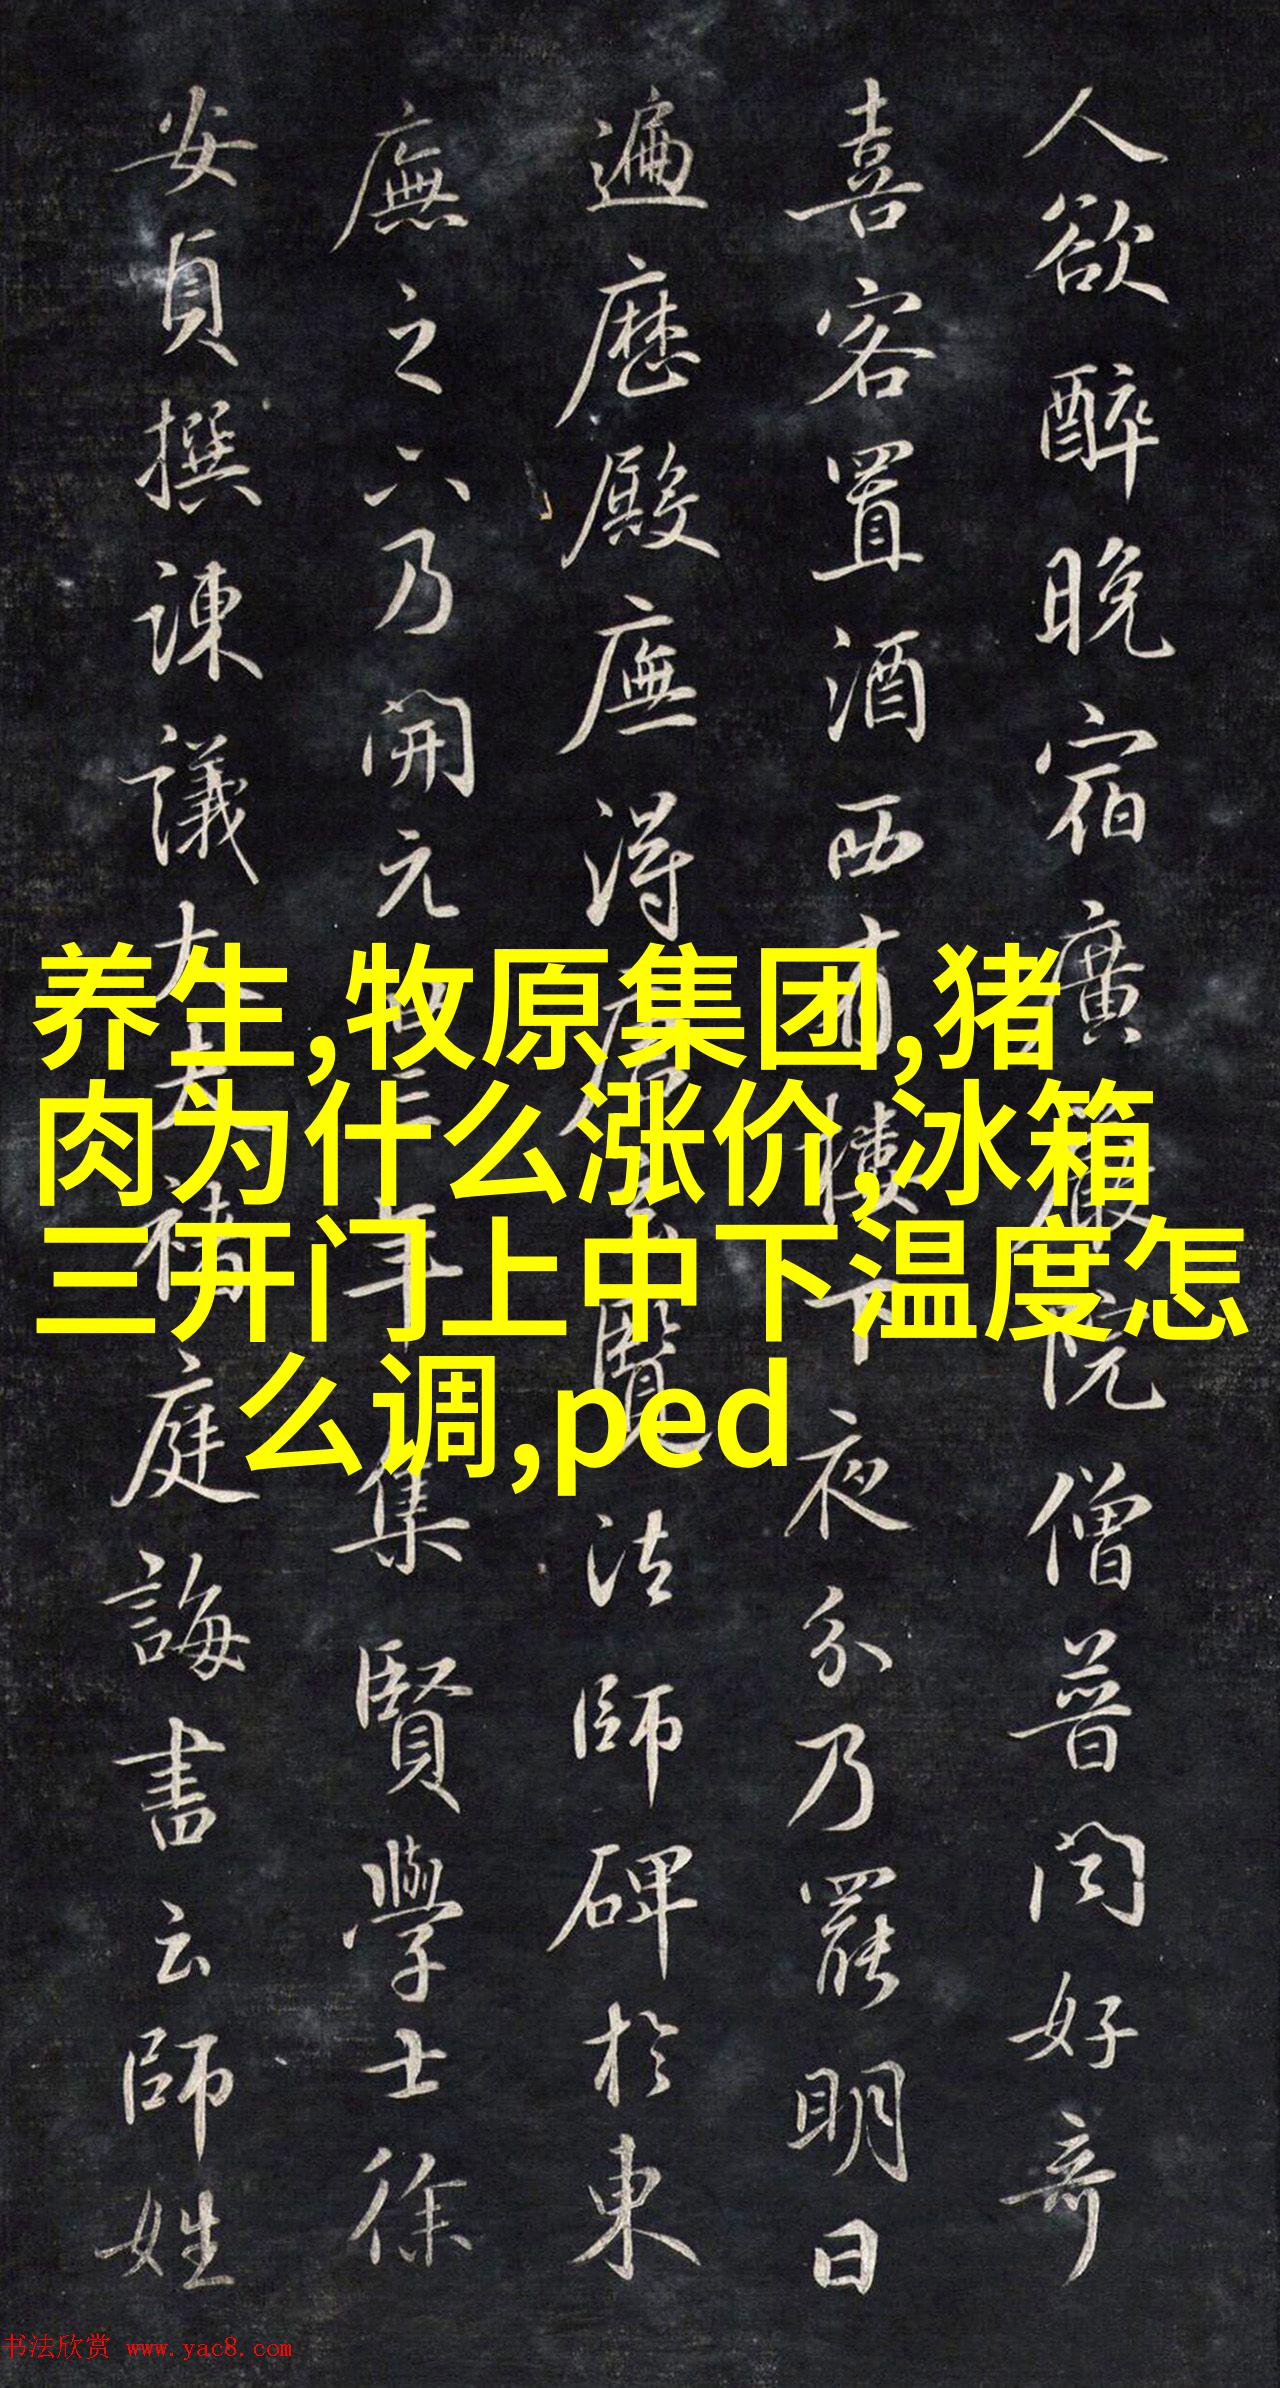 人欲醉晚宿廣嚴院僧普闻好奇
喜客置酒西有樓下夜分乃罷明日
遍歷殿廡得唐玄覽法師碑於東
廡之六乃開元四三年集賢學士徐
安貞撰諫議大夫褚庭誨書云師姓
养生,牧原集团,猪
肉为什么涨价,冰箱
三开门上中下温度怎
么调,ped
书法欣赏 www.yac8.com